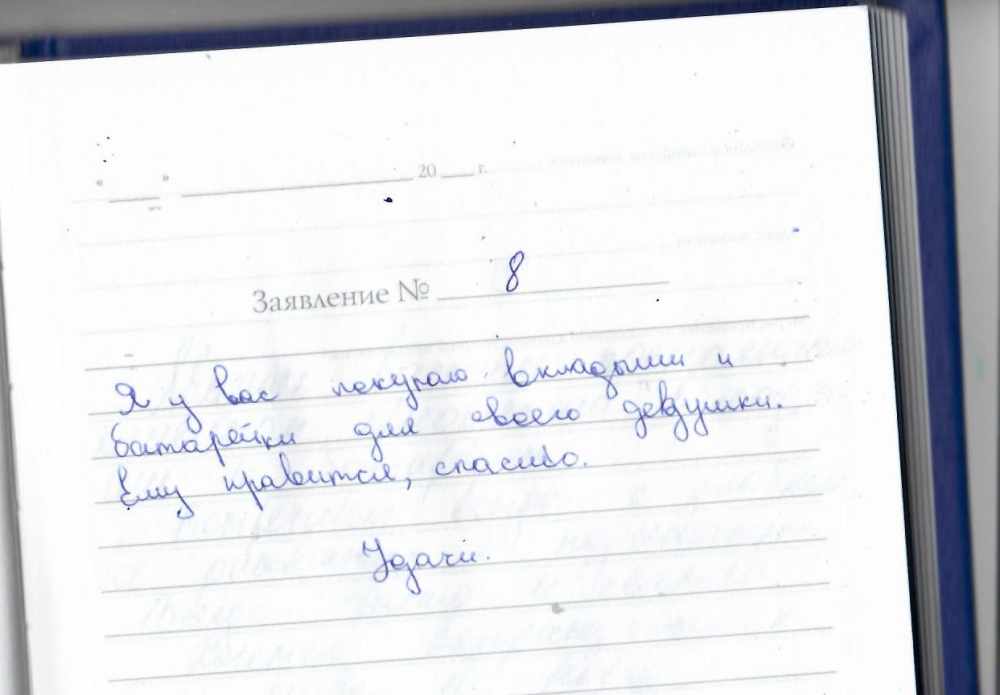 "___" ____________ 20 ___ г.
Заявление № 8
Я у вас покупаю вкладыши и
батарейки для своего дедушки.
Ему нравится, спасибо.
Удачи.